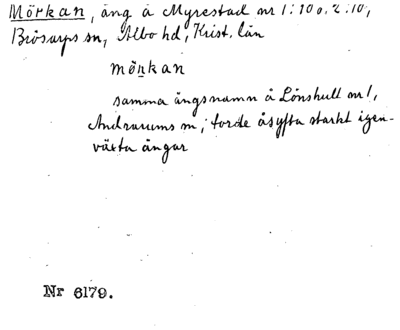 Mörkan, äng å Myrestad nr 1:10 o. 2:10,
Brösarps sn, Albo hd, Krist. län
mörkan
samma ängsnamn å Lönshult nr 1,
Andrarums sn; torde åsyfta starkt igen-
växta ängar
Nr 6179.